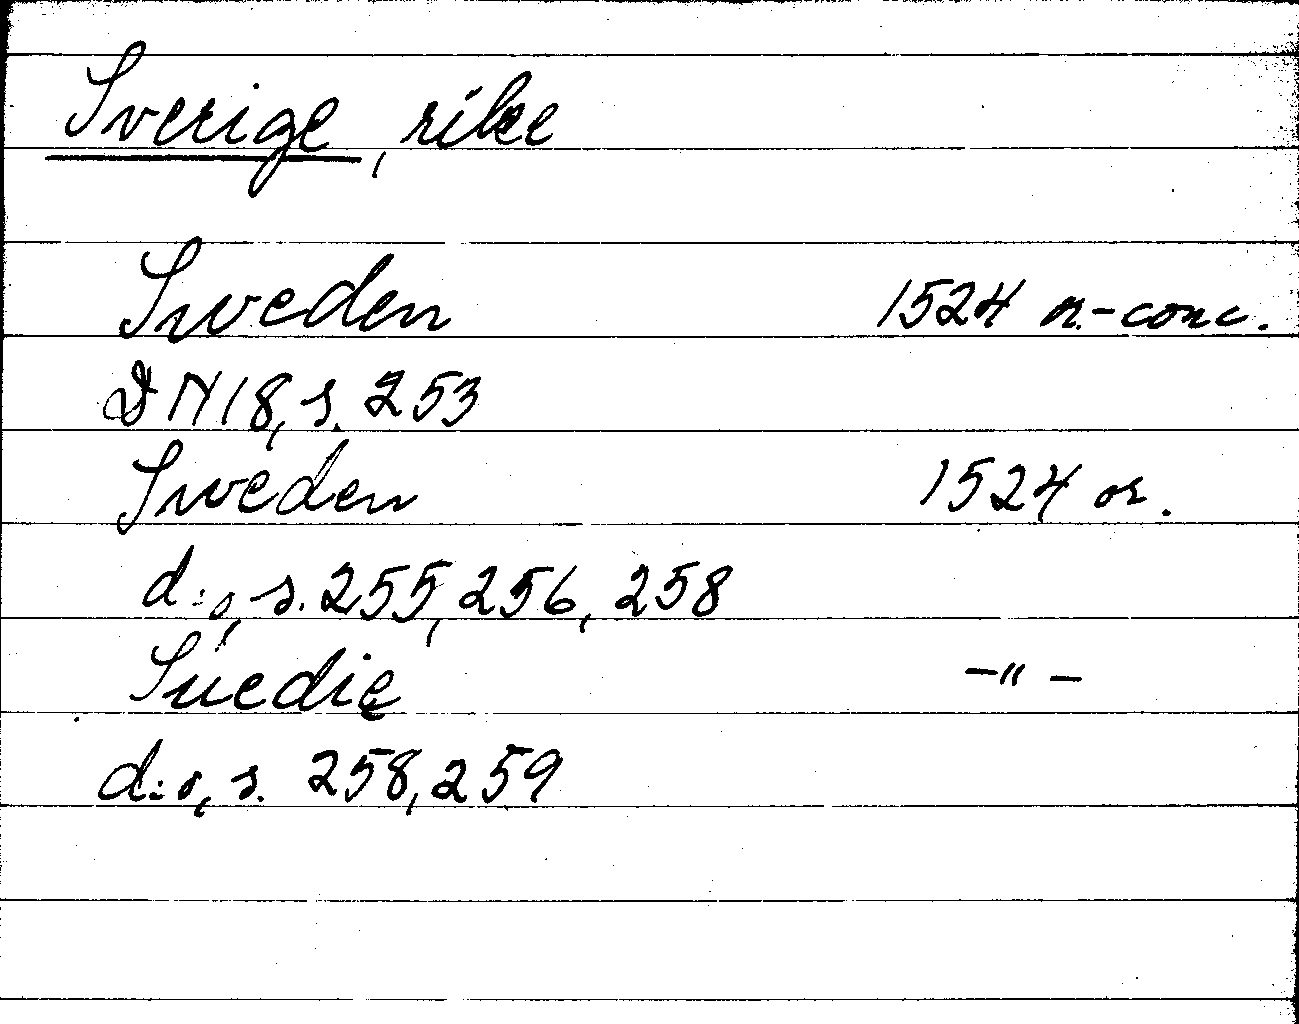 Sverige, rike
Sweden 1524 or.-conc.
DN 18, s. 253
Sweden 1524 or.
d:o, s. 255, 256, 258
Suedię -"-
d:o, s. 258, 259